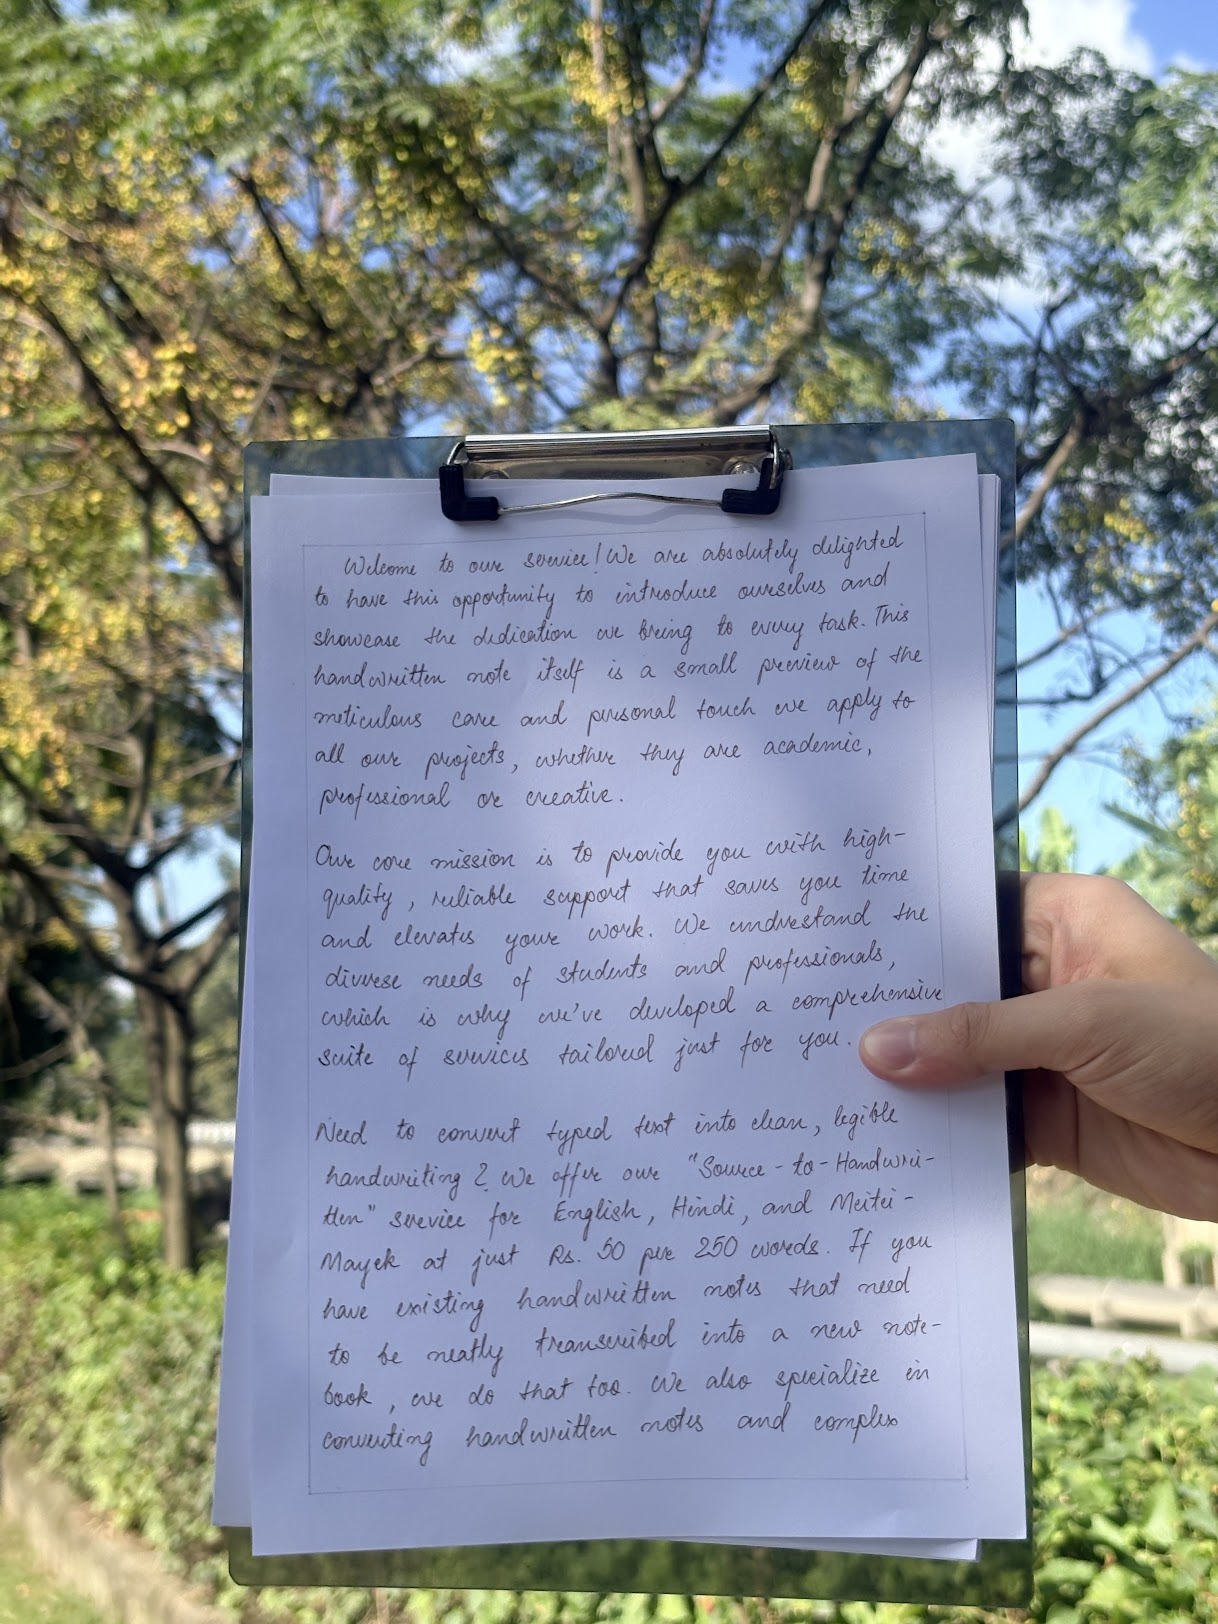 Welcome to our service! We are absolutely delighted
to have this opportunity to introduce ourselves and
showcase the dedication we bring to every task. This
handwritten note itself is a small preview of the
meticulous care and personal touch we apply to
all our projects, whether they are academic,
professional or creative.
Our core mission is to provide you with high-
quality, reliable support that saves you time
and elevates your work. We understand the
diverse needs of students and professionals,
which is why we've developed a comprehensive
suite of services tailored just for you.
Need to convert typed text into clean, legible
handwriting? We offer our "Source-to-Handwri-
tten" service for English, Hindi, and Meitei-
Mayek at just Rs. 50 per 250 words. If you
have existing handwritten notes that need
to be neatly transcribed into a new note-
book, we do that too. We also specialize in
converting handwritten notes and complex